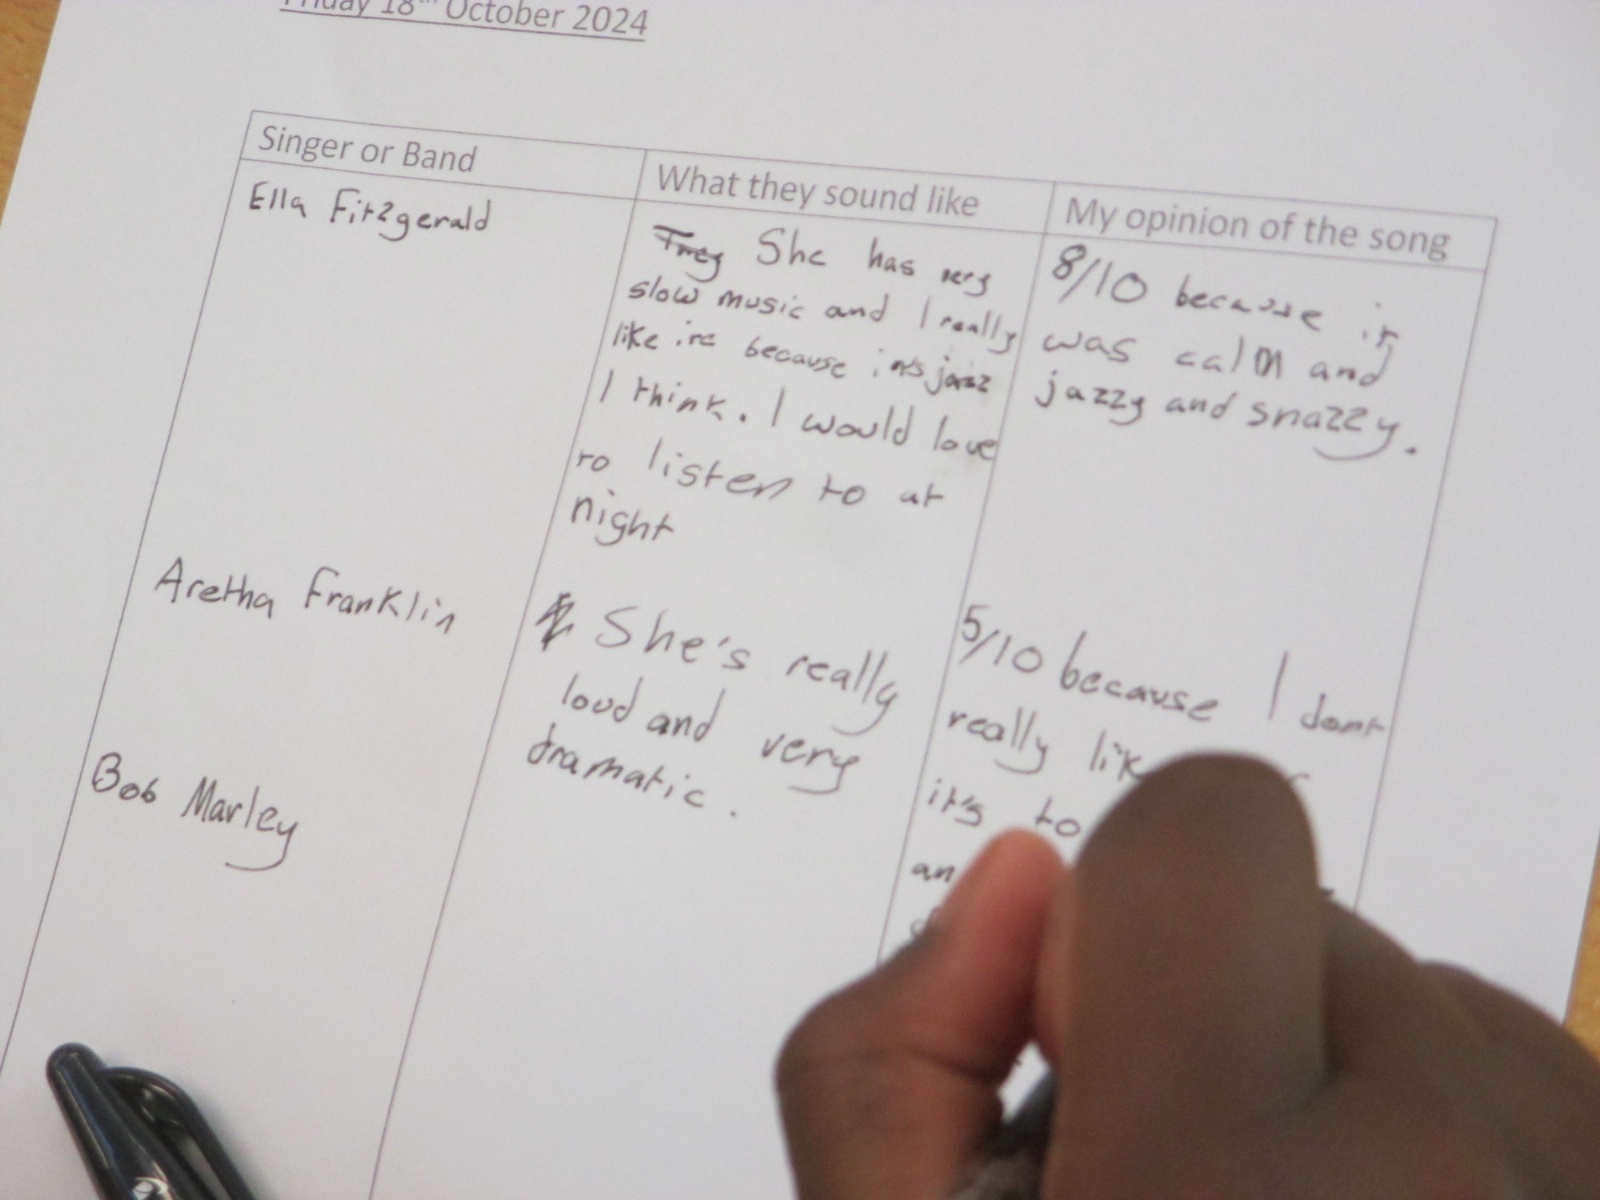 Friday 18th October 2024
Singer or Band
What they sound like
My opinion of the song
Ella Fitzgerald
They She has very
slow music and I really
like because it's jazz
I think. I would love
to listen to at
night
8/10 because it
was calm and
jazzy and snazzy.
Aretha Franklin
She's really
loud and very
dramatic.
5/10 because I dont
really
it's to
Bob Marley